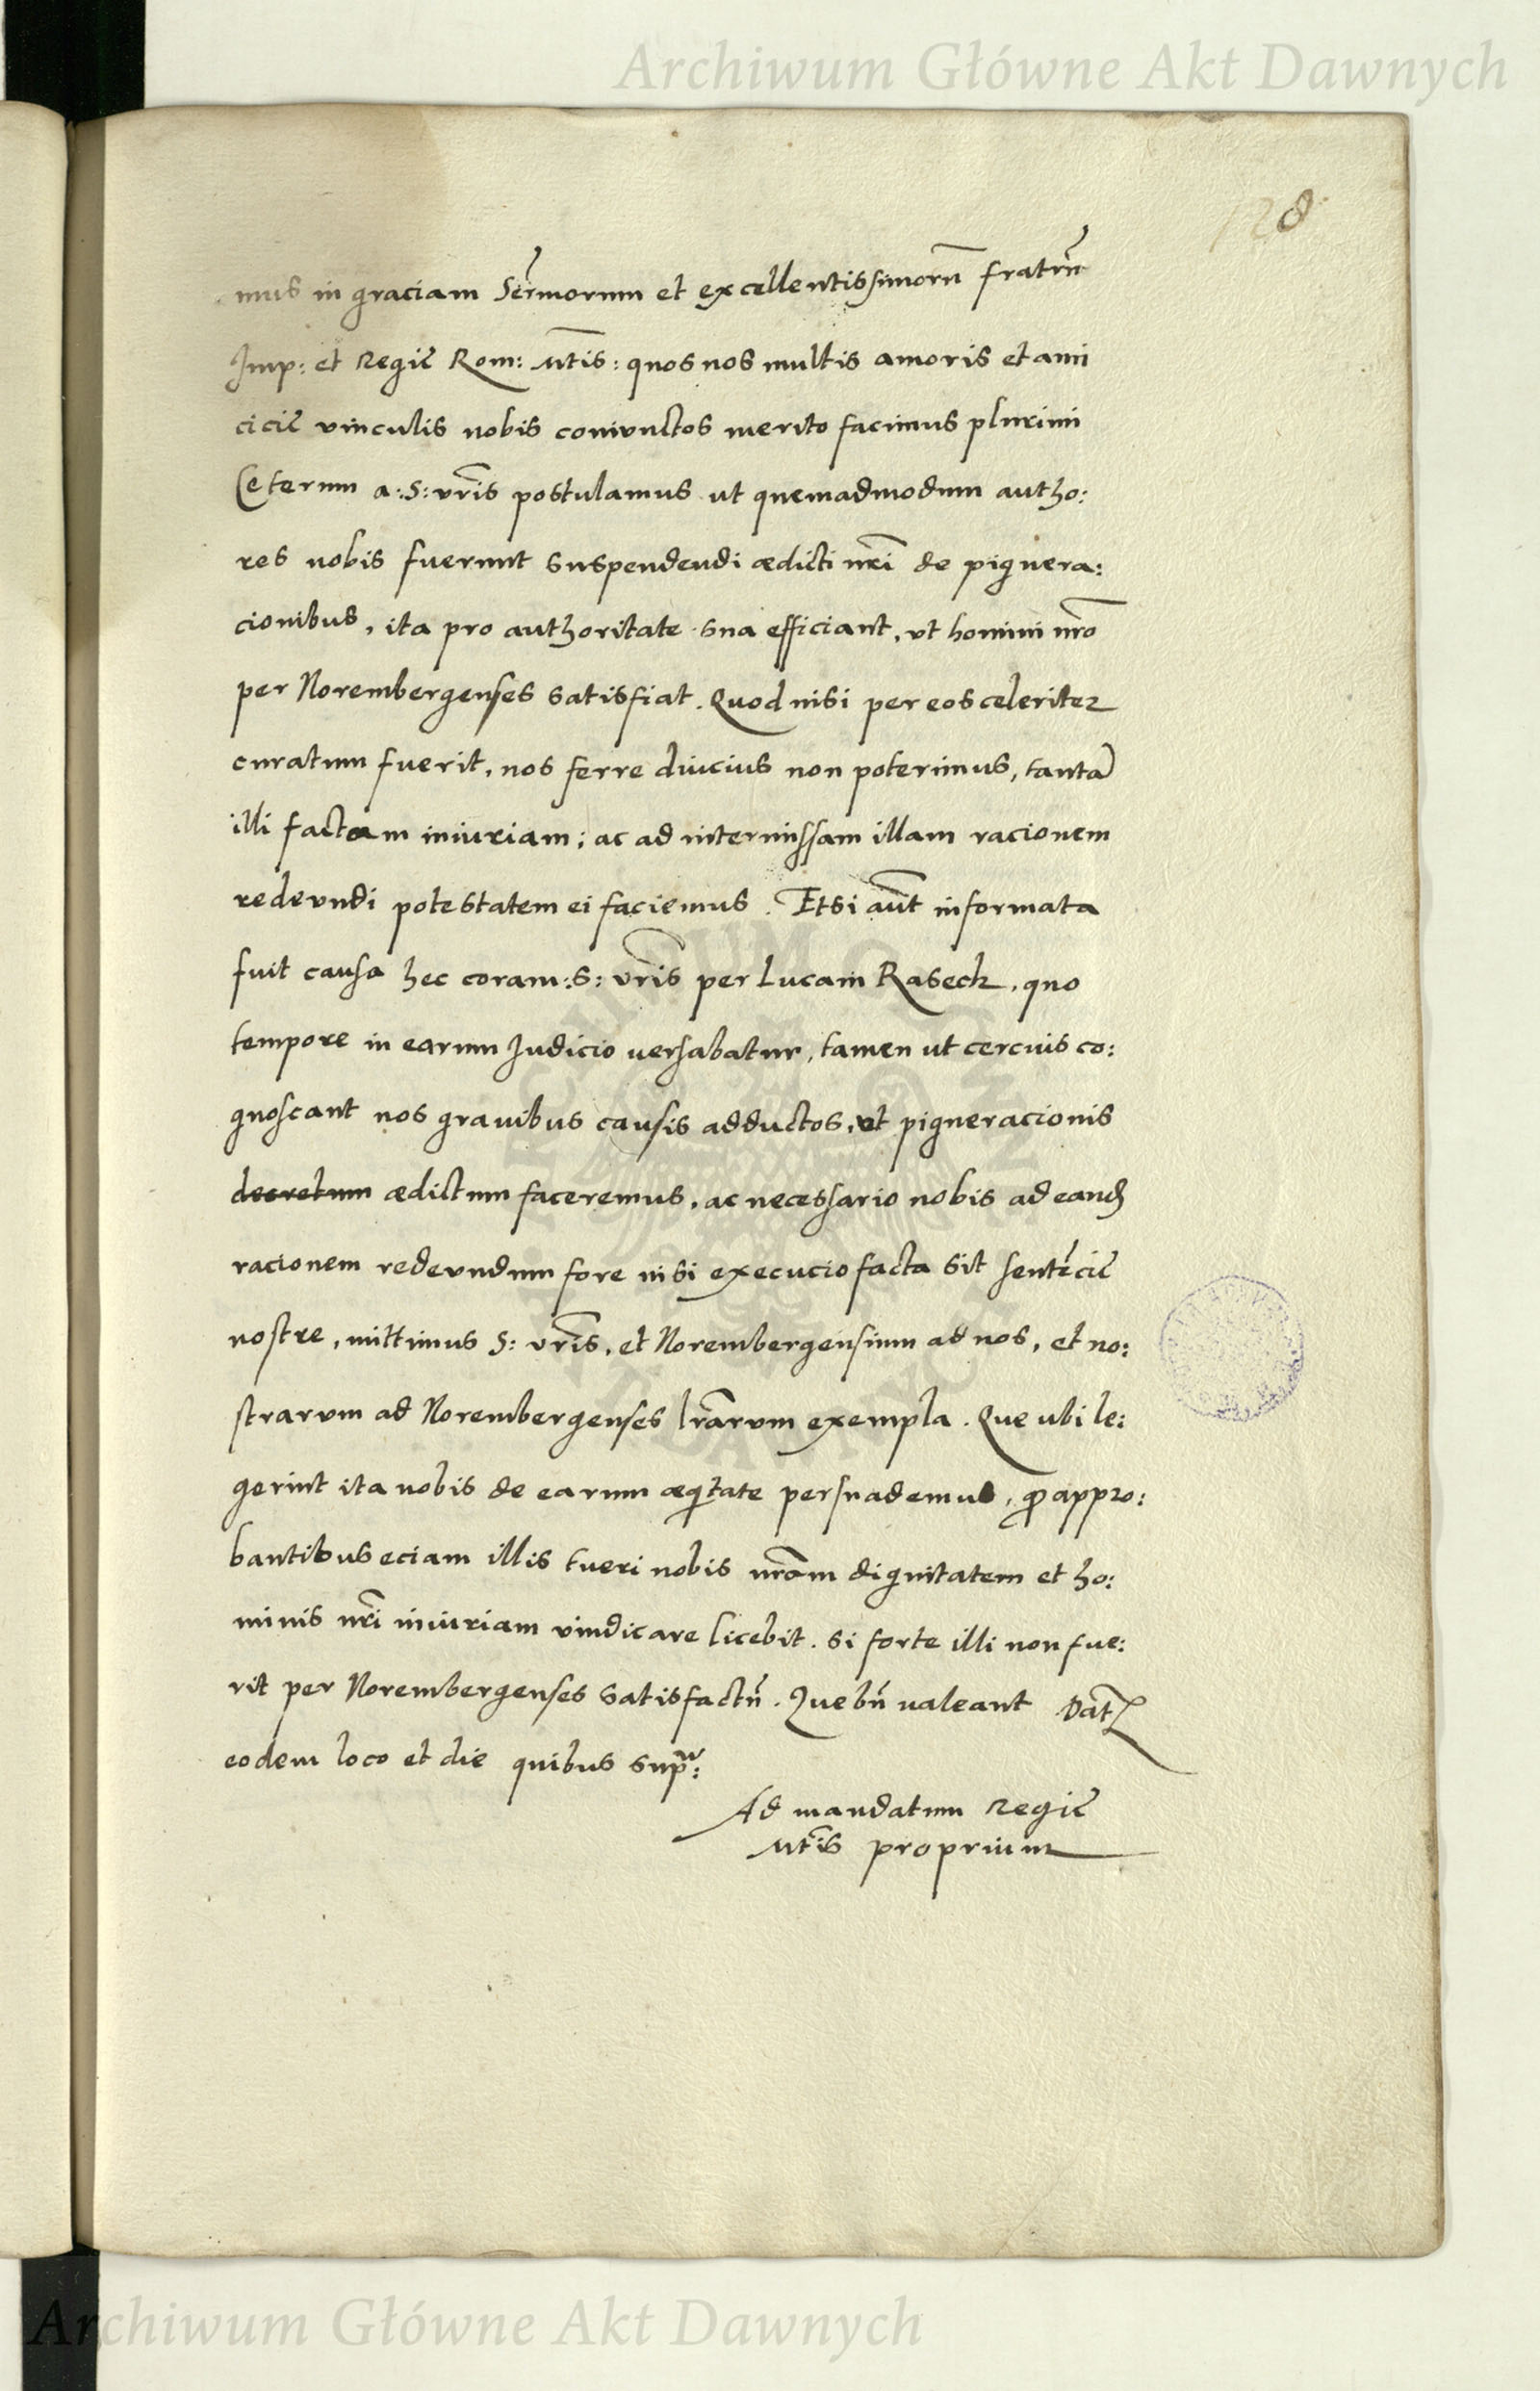 Archiwum Główne Akt Dawnych
128
mus in graciam Sermorum et excellentissimorũ fratrũ
Imp: et Regie Rom: Mtis: quos nos multis amoris et ami
cicie vinculis nobis coniunctos merito facimus plurimi
Ceterum a: S: vris postulamus ut quemadmodum autho:
res nobis fuerunt suspendendi ædicti nri de pignera:
cionibus, ita pro authoritate sua efficiant, vt homini nro
per Norembergenses satisfiat. Quod nisi per eos celeriter
curatum fuerit, nos ferre diucius non poterimus, tantã
illi factam iniuriam; ac ad intermissam illam racionem
redeundi potestatem ei faciemus. Etsi aũt informata
fuit causa hec coram: S: vris per Lucam Raseck, quo
tempore in earum Judicio versabatur, tamen ut cercius co:
gnoscant nos gravibus causis adductos, ut pigneracionis
decretum ædictum faceremus, ac necessario nobis ad eandẽ
racionem redeundum fore nisi execucio facta sit sentẽcie
nostre, mittimus S: vris, et Norembergensium ad nos, et no:
strarum ad Norembergenses lrarum exempla. Que ubi le:
gerint ita nobis de earum æqitate persuademus, qp appro:
bantibus eciam illis tueri nobis nram dignitatem et ho:
minis nri iniuriam vindicare licebit. Si forte illi non fue:
rit per Norembergenses satisfactũ. Que bñ valeant Dat
eodem loco et die quibus supra:
Ad mandatum Regie
Mtis proprium
Archiwum Główne Akt Dawnych